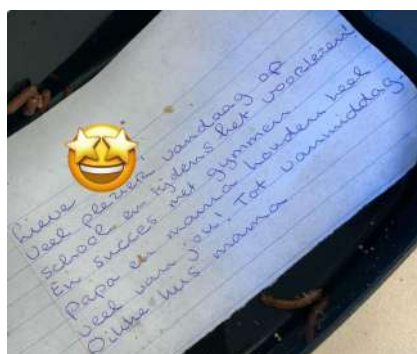 Lieve
Veel plezier vandaag op
school en tijdens het voorlezen!
En succes met gymmen.
Papa en mama houden heel
veel van jou! Tot vanmiddag.
Dikke kus mama